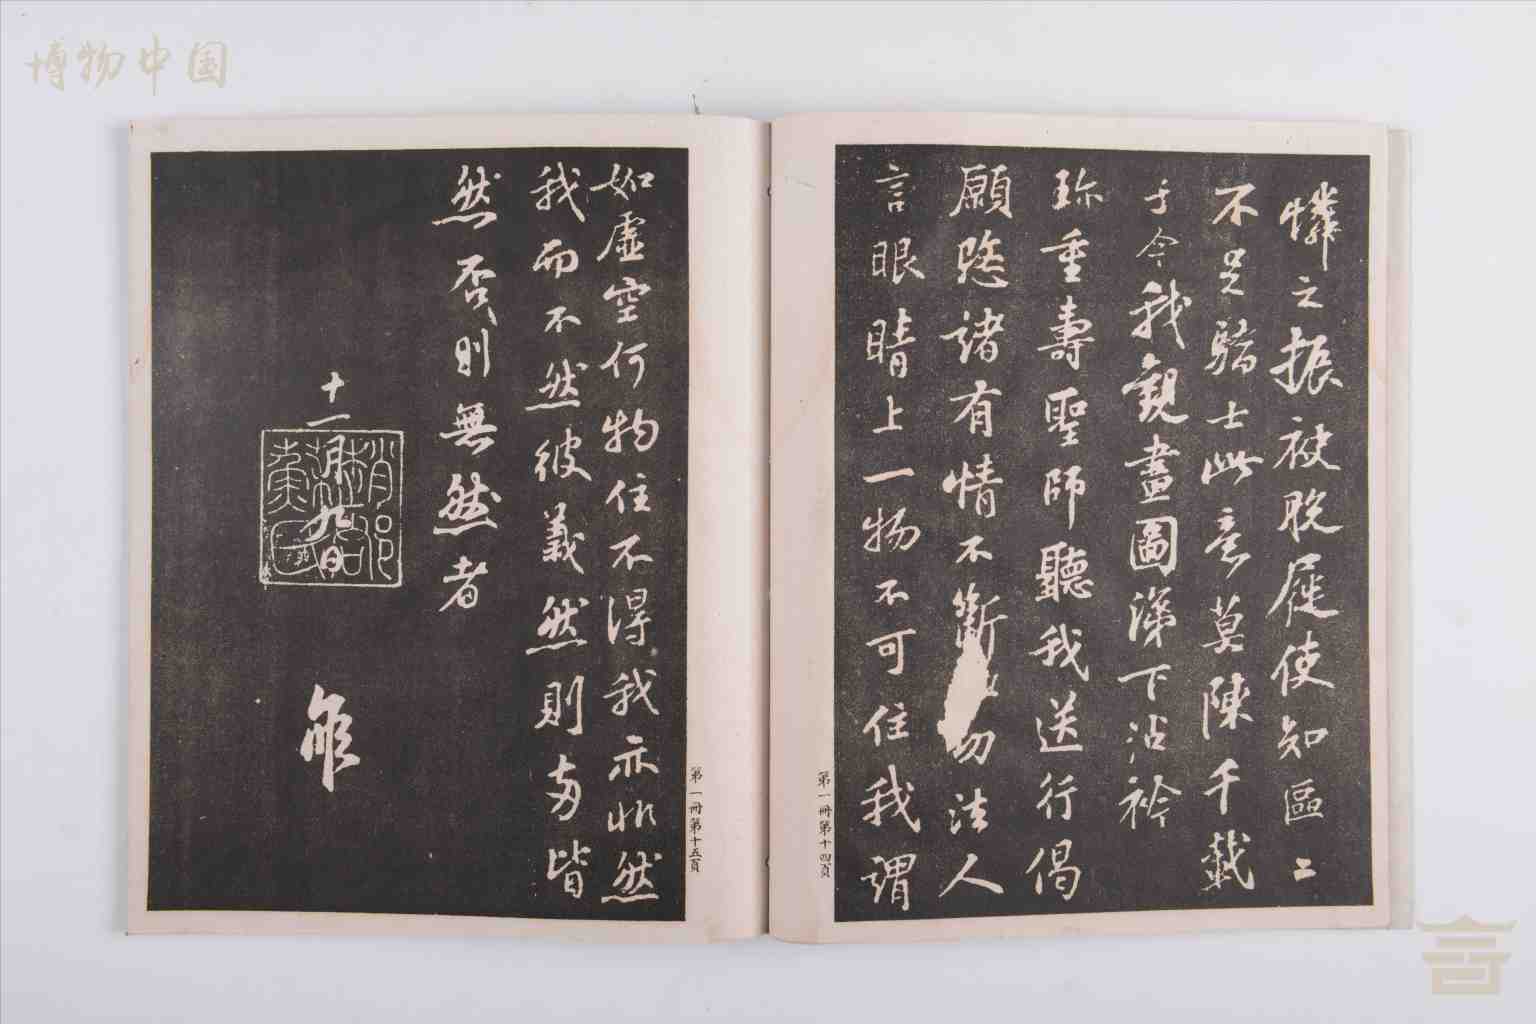 博物中国
憐之振被脫屣使知區二
不足驕士此意莫陳千載
于今我觀畫圖涕下沾衿
珎重壽聖師聽我送行偈
願愍諸有情不斷 切法人
言眼睛上一物不可住我謂
第一冊第十四頁
如虛空何物住不得我亦非然
我而不然彼義然則兩皆
然否則無然者
十一月九日
第一冊第十五頁